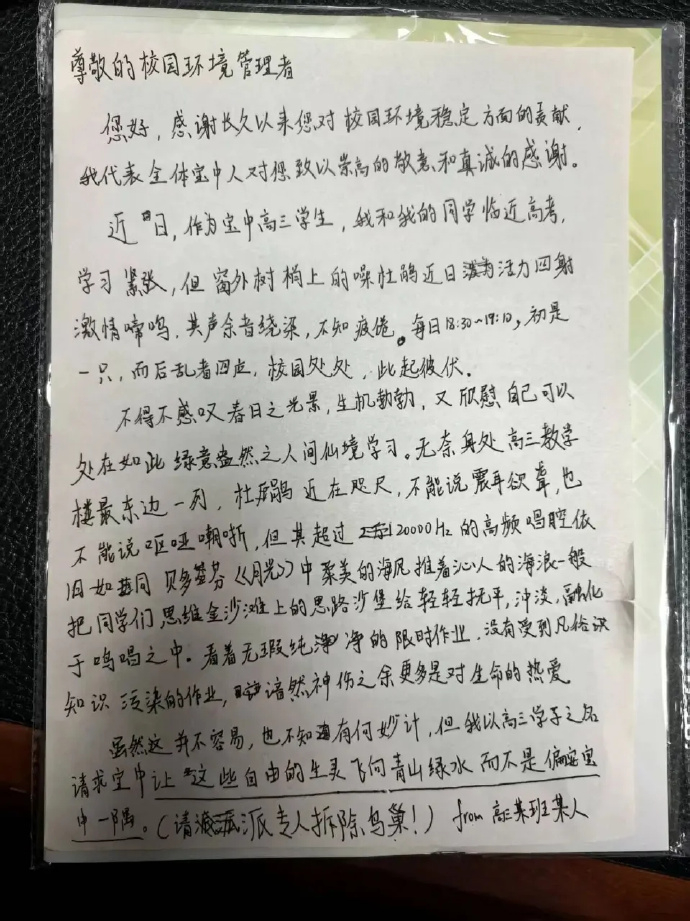 尊敬的校园环境管理者
您好，感谢长久以来您对校园环境稳定方面的贡献，
我代表全体宝中人对您致以崇高的敬意和真诚的感谢。
近日，作为宝中高三学生，我和我的同学临近高考，
学习紧张，但窗外树梢上的噪杜鹃近日活力四射
激情啼鸣，其声余音绕梁，不知疲倦。每日18:30~19:10，初是
一只，而后乱者四应，校园处处，此起彼伏。
不得不感叹春日之光景，生机勃勃，又欣慰自己可以
处在如此绿意盎然之人间仙境学习。无奈身处高三教学
楼最东边一列，杜鹃近在咫尺，不能说震耳欲聋，也
不能说呕哑嘲哳，但其超过20000Hz的高频唱腔依
旧如同贝多芬《月光》中聚美的海风推着沁人的海浪一般
把同学们思维金沙滩上的思路沙堡给轻轻抚平，冲淡，融化
于鸣唱之中。看着无瑕纯净的限时作业，没有受到凡俗
知识污染的作业，谙然神伤之余更多是对生命的热爱
虽然这并不容易，也不知有何妙计，但我以高三学子之名
请求宝中让这些自由的生灵飞向青山绿水而不是偏安宝
中一隅。（请派专人拆除鸟巢！）from 高三某班某人